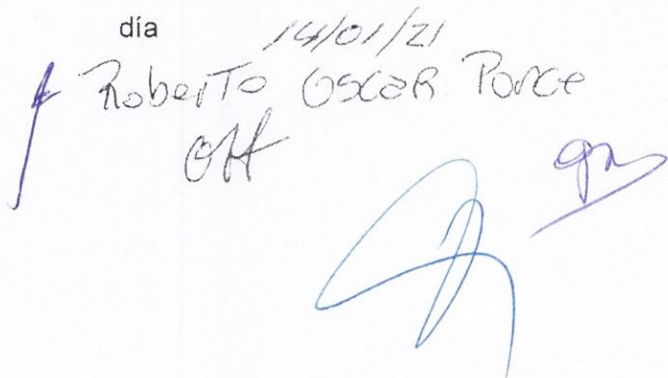 día 14/01/21
Roberto Oscar Ponce